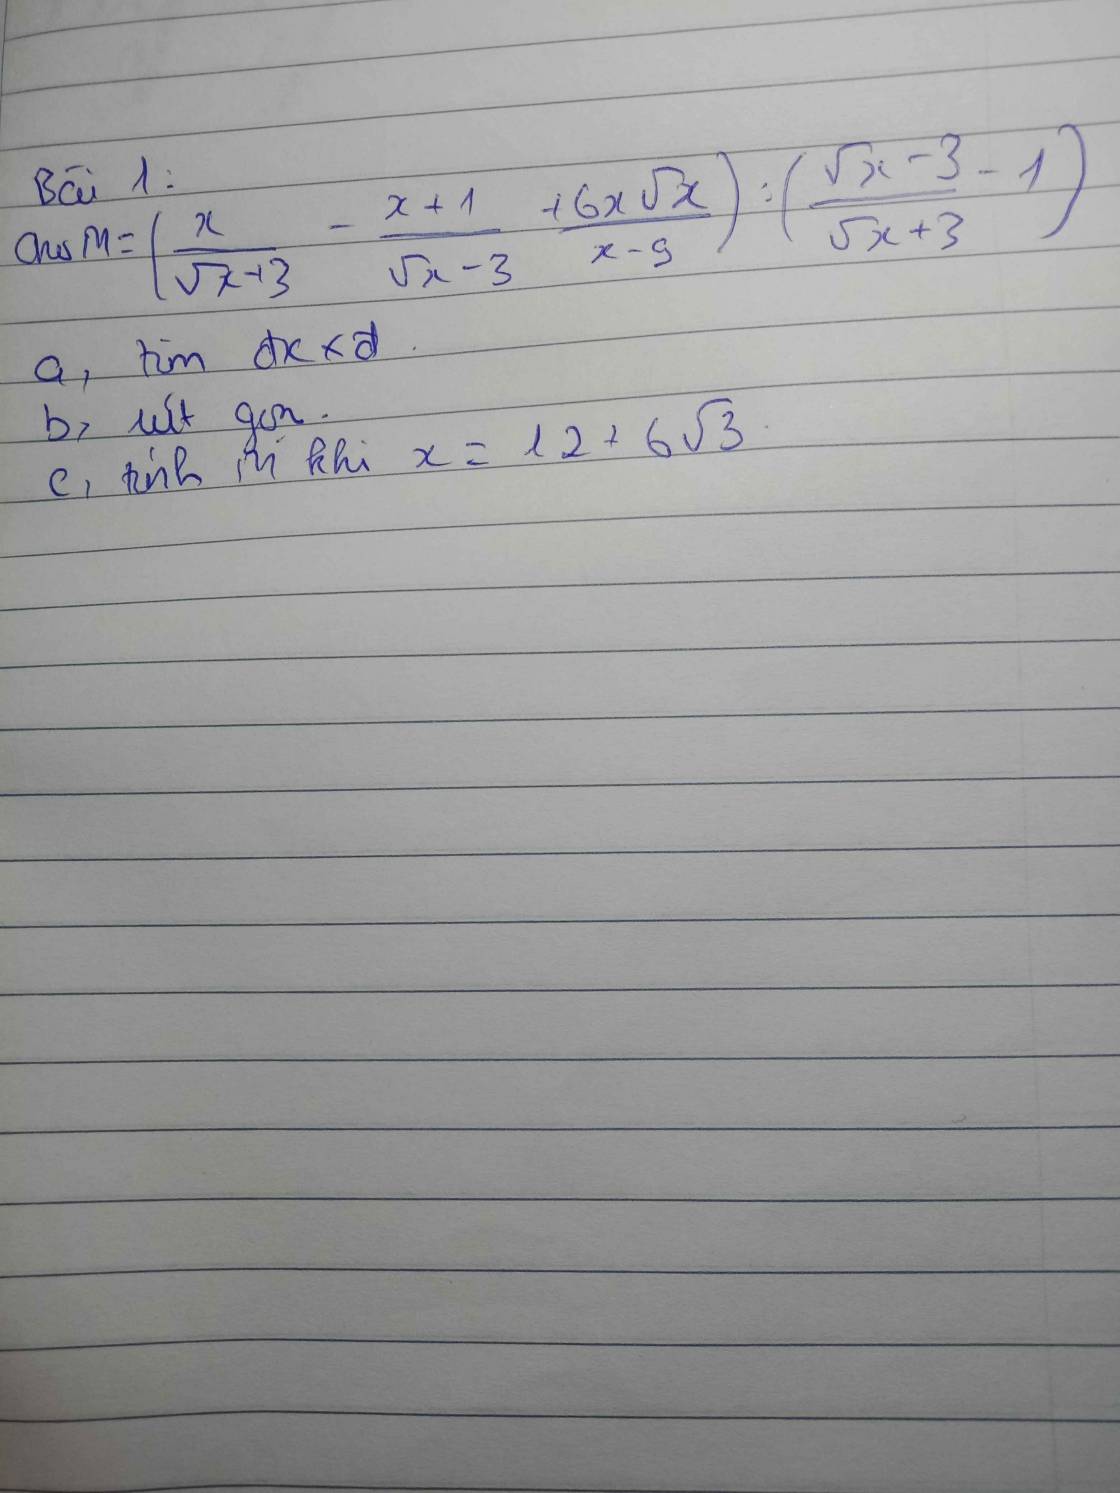 Bài 1:
Cho M = ( x / √x+3 - x+1 / √x-3 + 6x√x / x-9 ) : ( √x-3 / √x+3 - 1 )
a, tìm đkxđ.
b, rút gọn.
c, tính M khi x = 12 + 6√3.